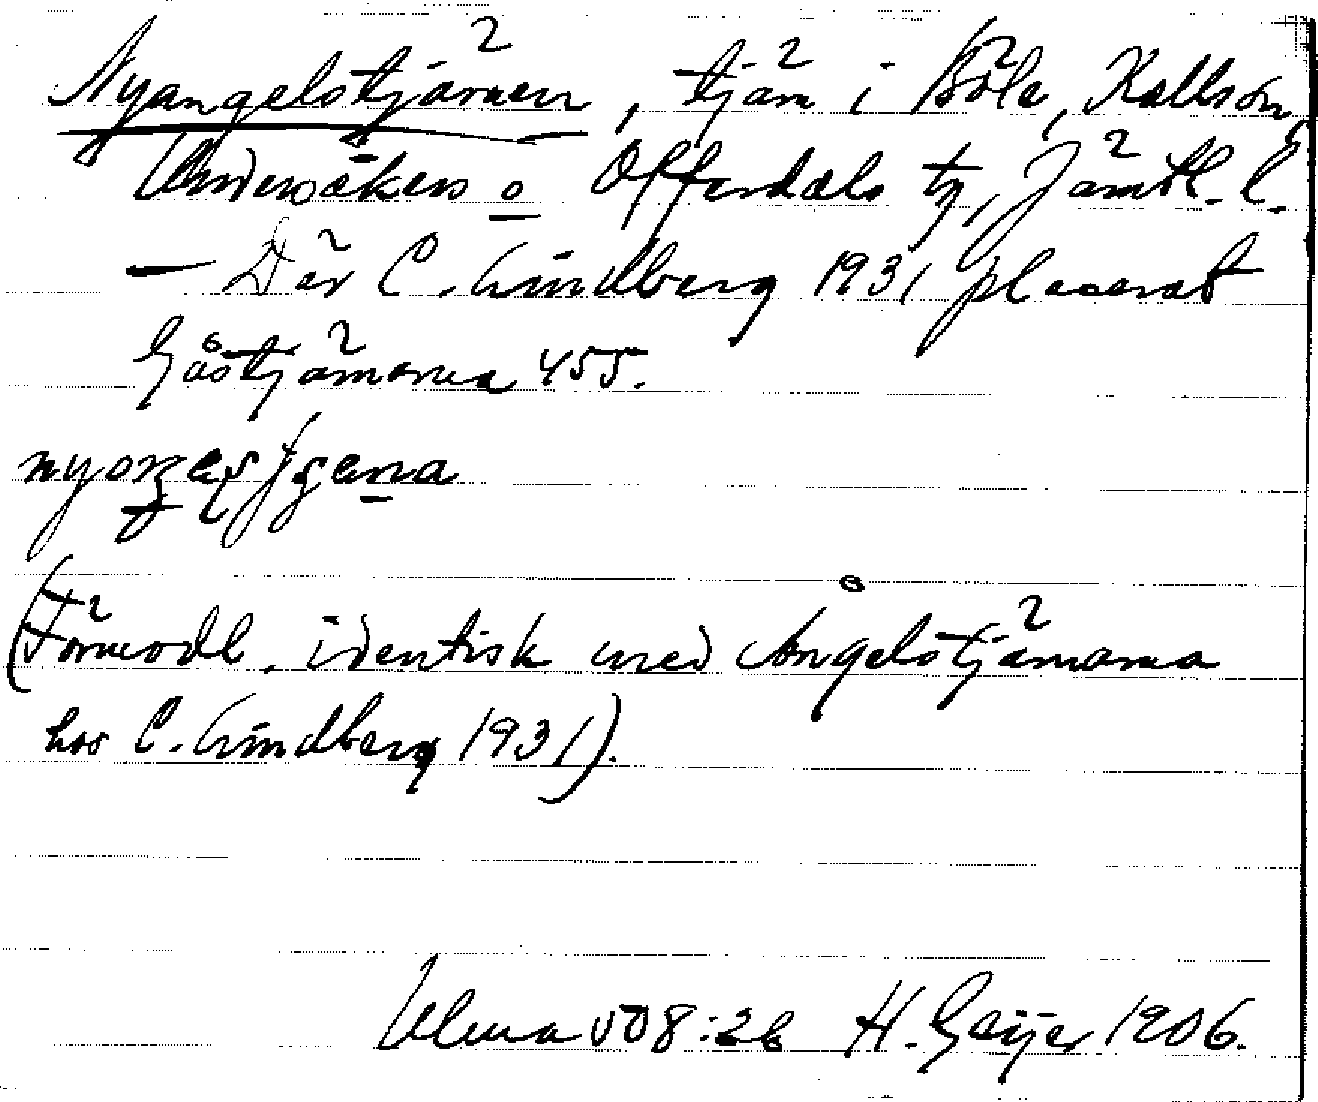 Nyangelstjärnen, tjärn i Böle, Kallsön,
Undersåkers o Offerdals tg, Jämtl. l.
— Där C. Lindberg 1931 placerat
Gåstjärnarna 455.
(Förmodl. identisk med Ångelstjärnarna
hos C. Lindberg 1931).
Ulma 508:26 H. Geijer 1906.